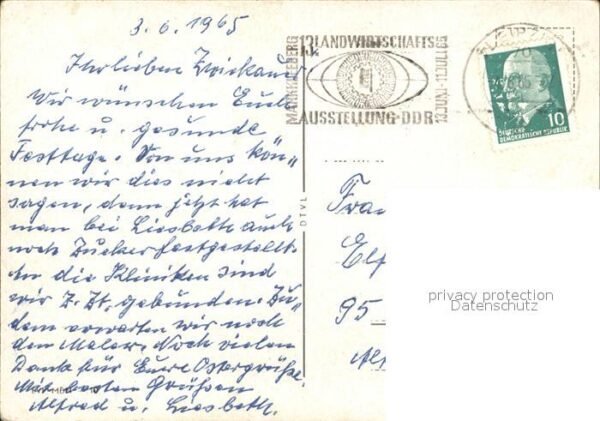 3. 6. 1965
Ihr lieben Zwickauer
Wir wünschen Euch
frohe u. gesunde
Festtage. Von uns kön„
nen wir dies nicht
sagen, denn jetzt hat
man bei Liesbeth auch
noch Zucker festgestellt.
An die Kliniken sind
wir z. Zt. gebunden. Zu„
dem erwarten wir noch
den Maler. Noch vielen
Dank für Eure Ostergrüße.
Mit besten Grüßen
Alfred u. Liesbeth.
MARKKLEEBERG
13. LANDWIRTSCHAFTS
AUSSTELLUNG · DDR
13. JUNI - 11. JULI 65
LEIPZIG
10
DEUTSCHE
DEMOKRATISCHE REPUBLIK
DTVL
Frau
95
privacy protection
Datenschutz